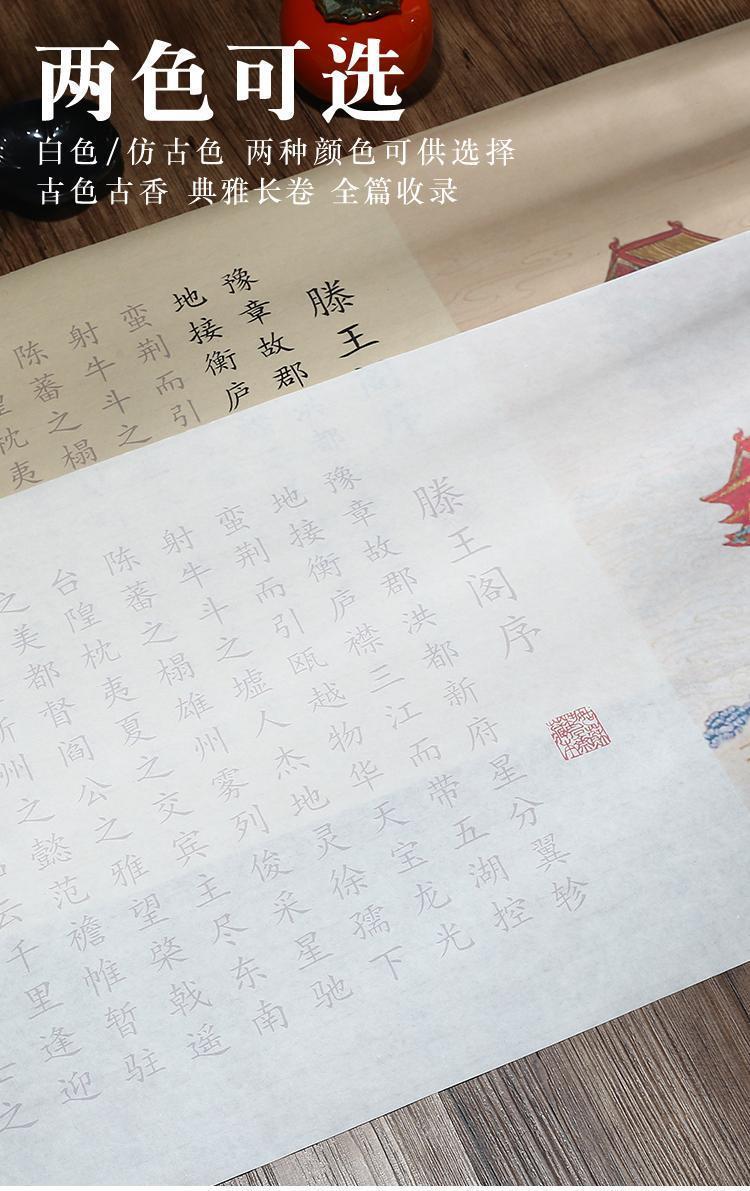 两色可选
白色/仿古色 两种颜色可供选择
古色古香 典雅长卷 全篇收录
滕王
豫章故郡
地接衡庐
蛮荆而引
射牛斗之
陈蕃之榻
隍枕夷
滕王阁序
豫章故郡洪都新府星分翼轸
地接衡庐襟三江而带五湖控
蛮荆而引瓯越物华天宝龙光
射牛斗之墟人杰地灵徐孺下
陈蕃之榻雄州雾列俊采星驰
台隍枕夷夏之交宾主尽东南
之美都督阎公之雅望棨戟遥
州之懿范襜帷暂驻
云千里逢迎
之